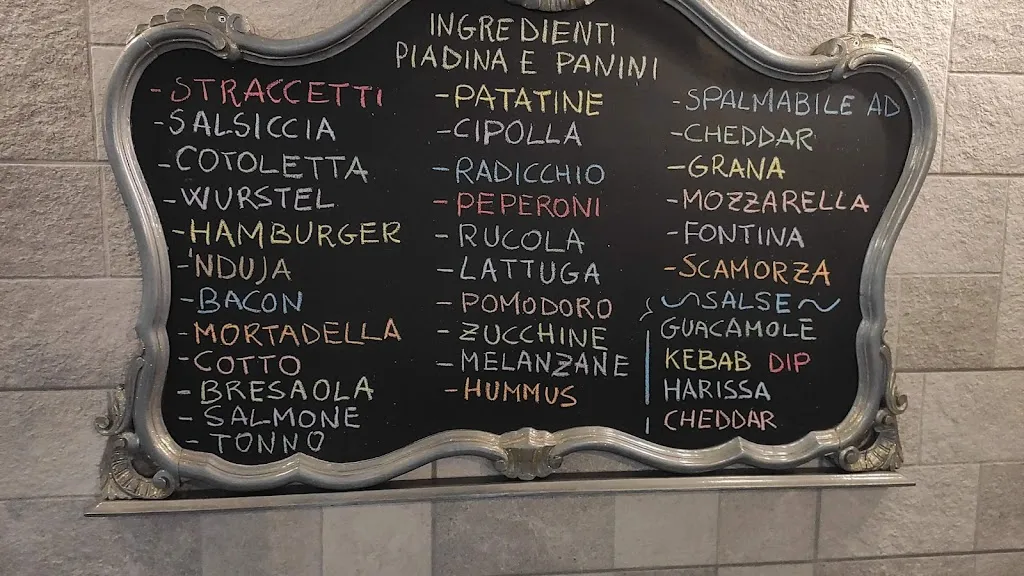 INGREDIENTI
PIADINA E PANINI
- STRACCETTI
- SALSICCIA
- COTOLETTA
- WURSTEL
- HAMBURGER
- 'NDUJA
- BACON
- MORTADELLA
- COTTO
- BRESAOLA
- SALMONE
- TONNO
- PATATINE
- CIPOLLA
- RADICCHIO
- PEPERONI
- RUCOLA
- LATTUGA
- POMODORO
- ZUCCHINE
- MELANZANE
- HUMMUS
- SPALMABILE AD
- CHEDDAR
- GRANA
- MOZZARELLA
- FONTINA
- SCAMORZA
~SALSE~
GUACAMOLE
KEBAB DIP
HARISSA
CHEDDAR